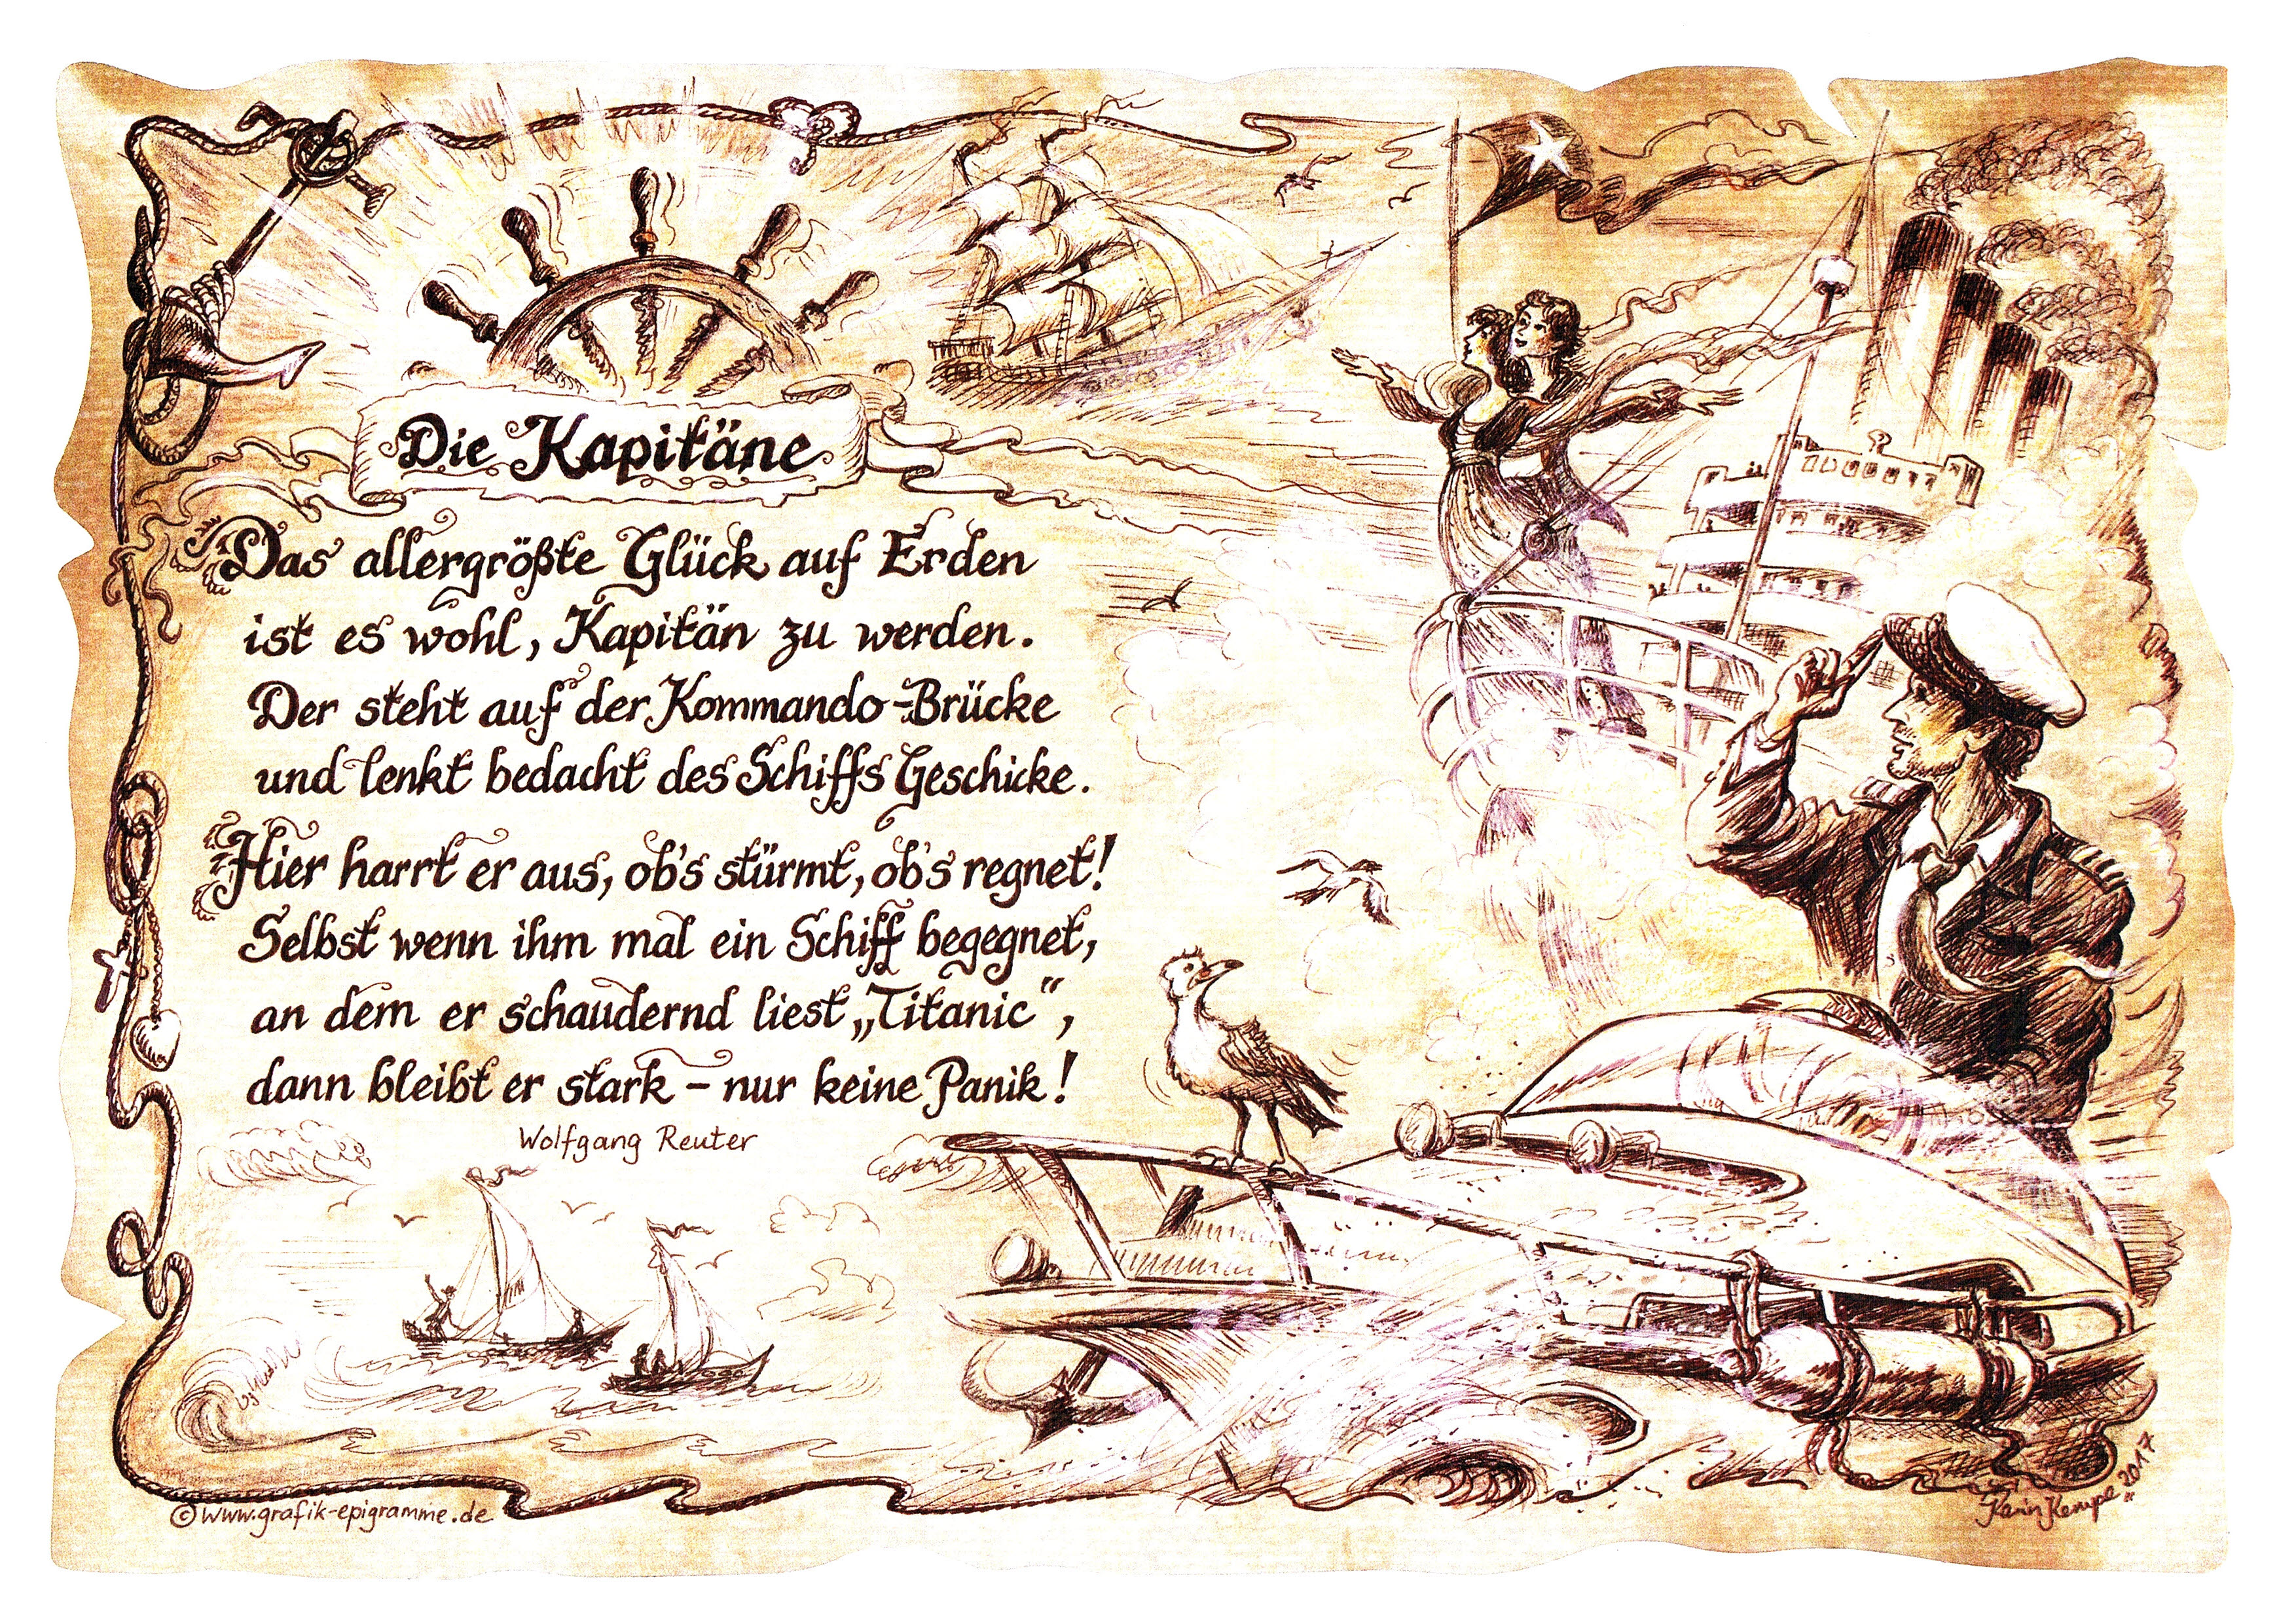 Die Kapitäne
Das allergrößte Glück auf Erden
ist es wohl, Kapitän zu werden.
Der steht auf der Kommando-Brücke
und lenkt bedacht des Schiffs Geschicke.
Hier harrt er aus, ob's stürmt, ob's regnet!
Selbst wenn ihm mal ein Schiff begegnet,
an dem er schaudernd liest „Titanic“,
dann bleibt er stark – nur keine Panik!
Wolfgang Reuter
©www.grafik-epigramme.de
Kempe 2017